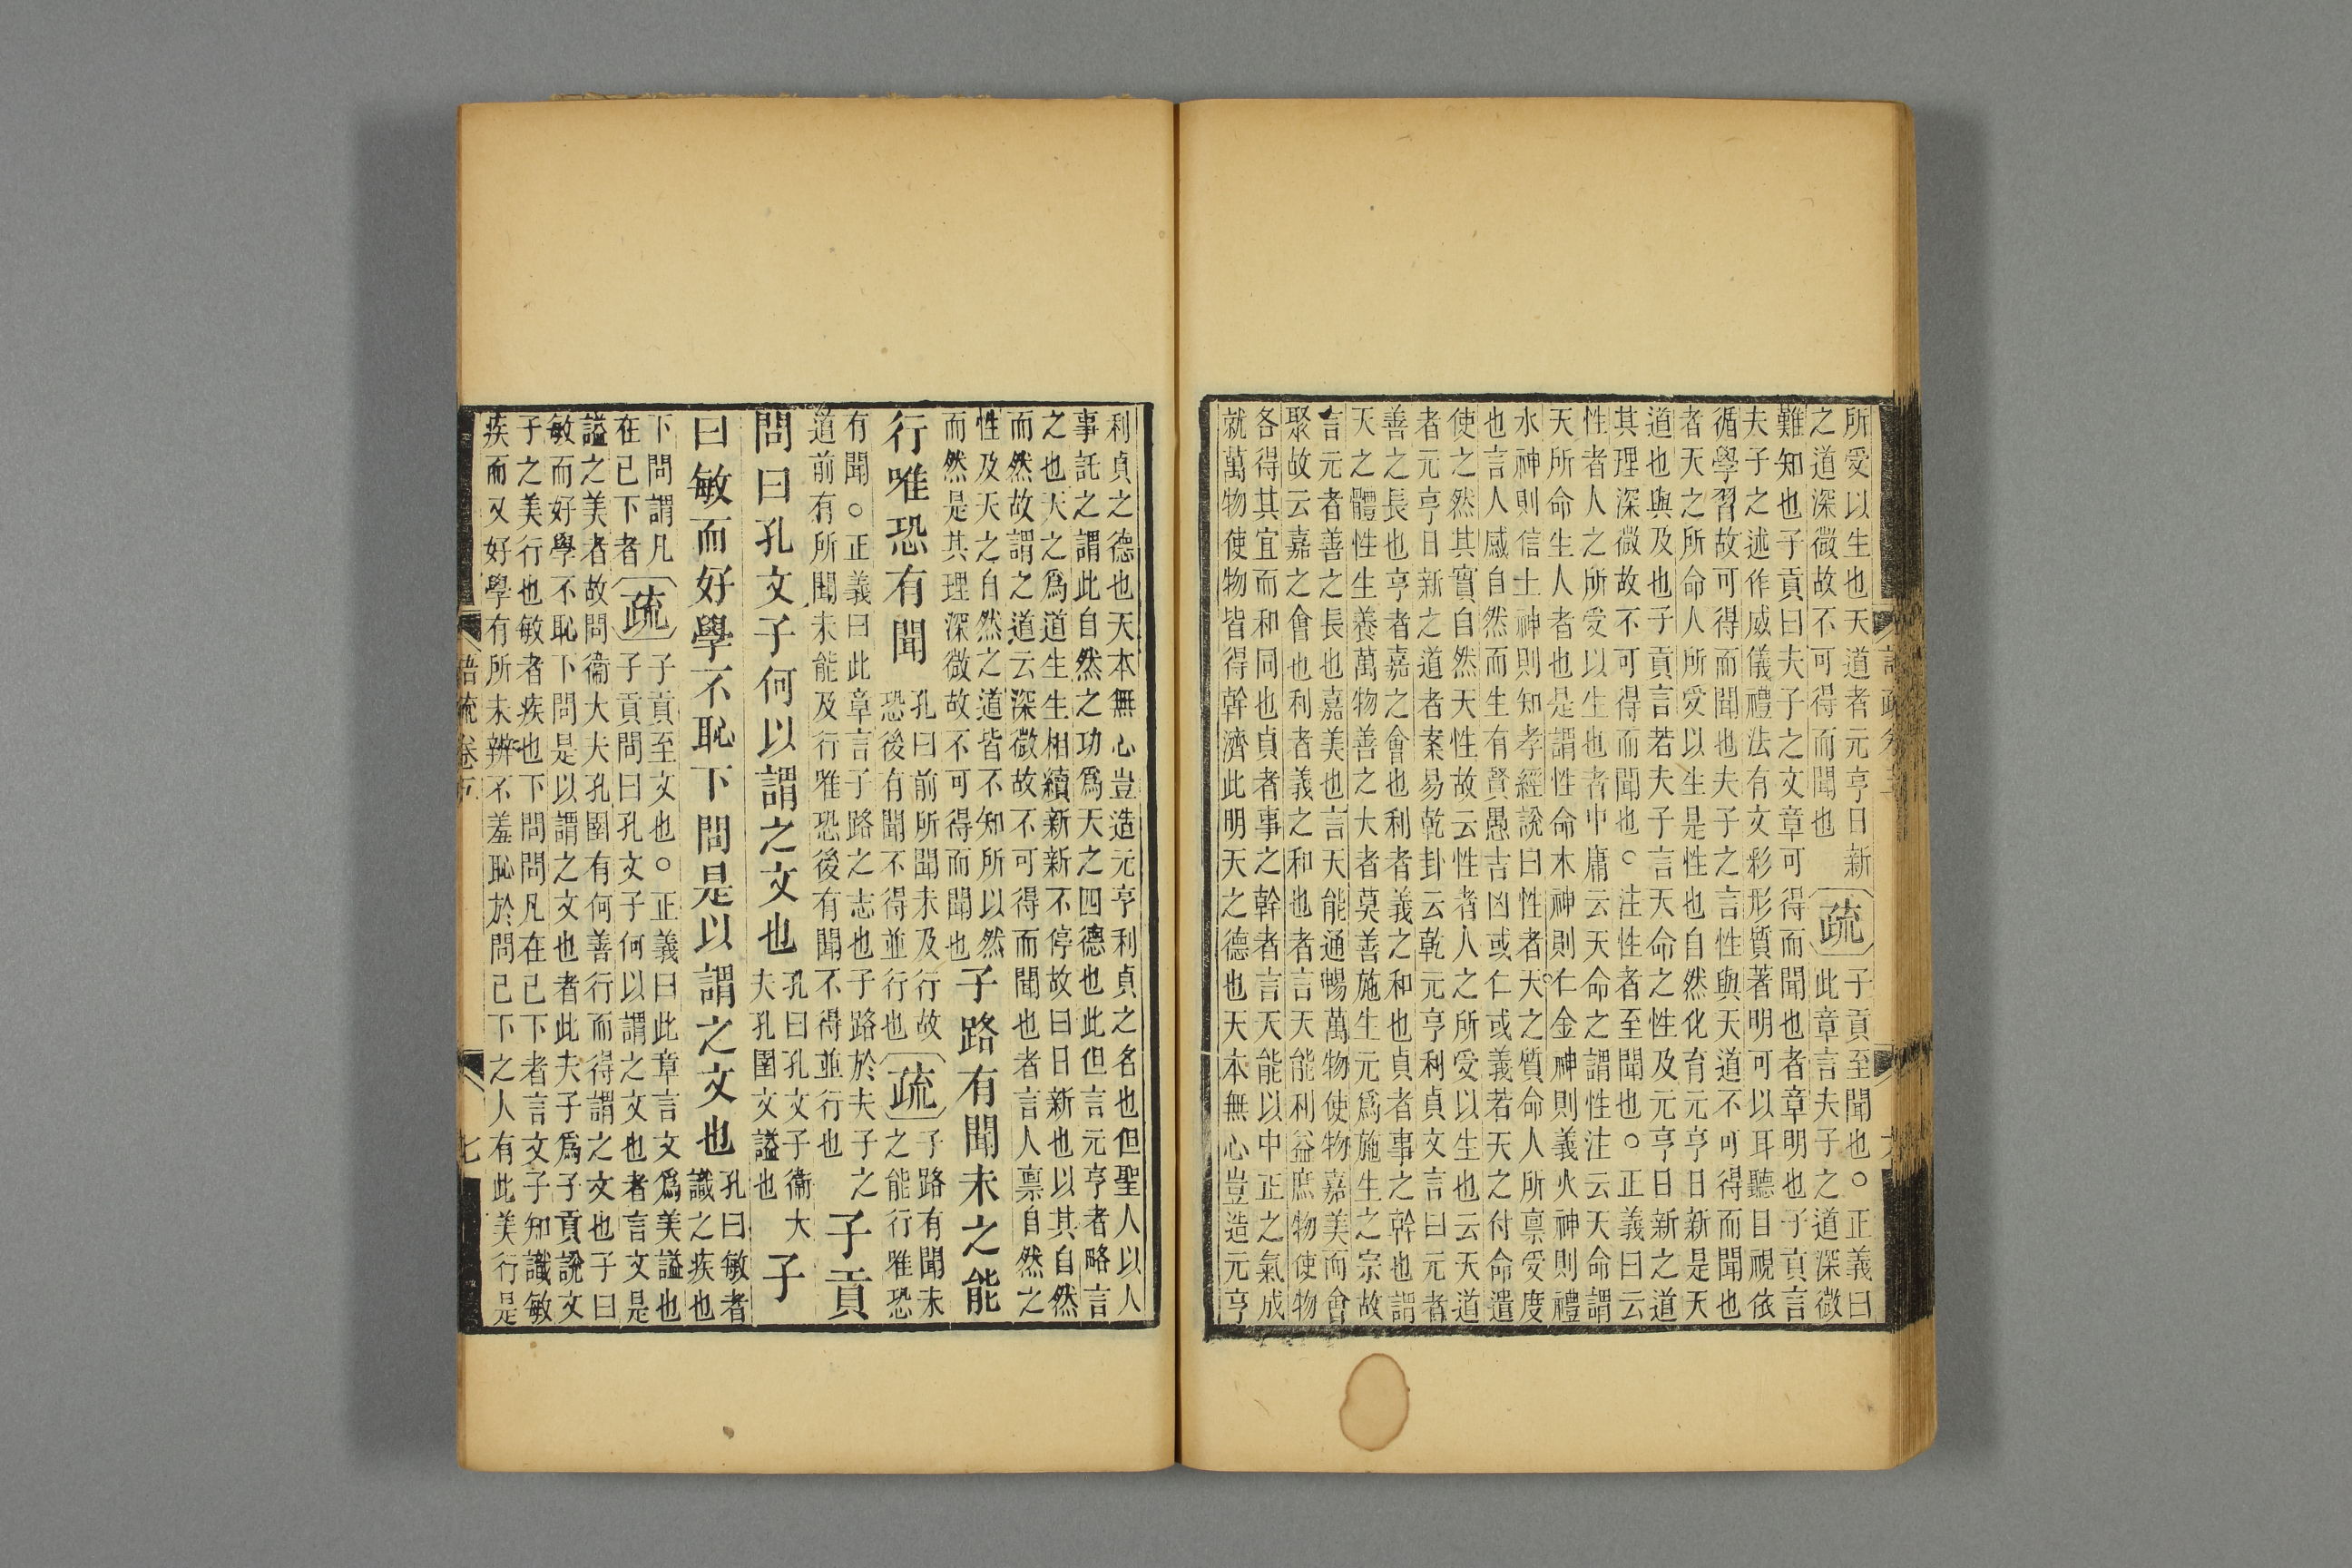 所受以生也天道者元亨日新
之道深微故不可得而聞也
疏
子貢至聞也○正義曰
此章言夫子之道深微
難知也子貢曰夫子之文章可得而聞也者章明也子貢言
夫子之述作威儀禮法有文彩形質著明可以耳聽目視依
循學習故可得而聞也夫子之言性與天道不可得而聞也
者天之所命人所受以生是性也自然化育元亨日新是天
道也與及也子貢言若夫子言天命之性及元亨日新之道
其理深微故不可得而聞也○注性者至聞也○正義曰云
性者人之所受以生也者中庸云天命之謂性注云天命謂
天所命生人者也是謂性命木神則仁金神則義火神則禮
水神則信土神則知孝經說曰性者天之質命人所禀受度
也言人感自然而生有賢愚吉凶或仁或義若天之付命遣
使之然其實自然天性故云性者人之所受以生也云天道
者元亨日新之道者案易乾卦云乾元亨利貞文言曰元者
善之長也亨者嘉之會也利者義之和也貞者事之幹也謂
天之體性生養萬物善之大者莫善施生元爲施生之宗故
言元者善之長也嘉美也言天能通暢萬物使物嘉美而會
聚故云嘉之會也利者義之和也者言天能利益庶物使物
各得其宜而和同也貞者事之幹者言天能以中正之氣成
就萬物使物皆得幹濟此明天之德也天本無心豈造元亨
利貞之德也天本無心豈造元亨利貞之名也但聖人以人
事託之謂此自然之功爲天之四德也此但言元亨者略言
之也天之爲道生生相續新新不停故曰日新也以其自然
而然故謂之道云深微故不可得而聞也者言人禀自然之
性及天之自然之道皆不知所以然
而然是其理深微故不可得而聞也
子路有聞未之能
行唯恐有聞
孔曰前所聞未及行故
恐後有聞不得並行也
疏
子路有聞未
之能行唯恐
有聞○正義曰此章言子路之志也子路於夫子之
道前有所聞未能及行唯恐後有聞不得並行也
子貢
問曰孔文子何以謂之文也
孔曰孔文子衞大
夫孔圉文謚也
子
曰敏而好學不恥下問是以謂之文也
孔曰敏者
識之疾也
下問謂凡
在己下者
疏
子貢至文也○正義曰此章言文爲美謚也
子貢問曰孔文子何以謂之文也者言文是
謚之美者故問衞大夫孔圉有何善行而得謂之文也子曰
敏而好學不恥下問是以謂之文也者此夫子爲子貢說文
子之美行也敏者疾也下問問凡在己下者言文子知識敏
疾而又好學有所未辨不羞恥於問己下之人有此美行是
語疏卷五
七